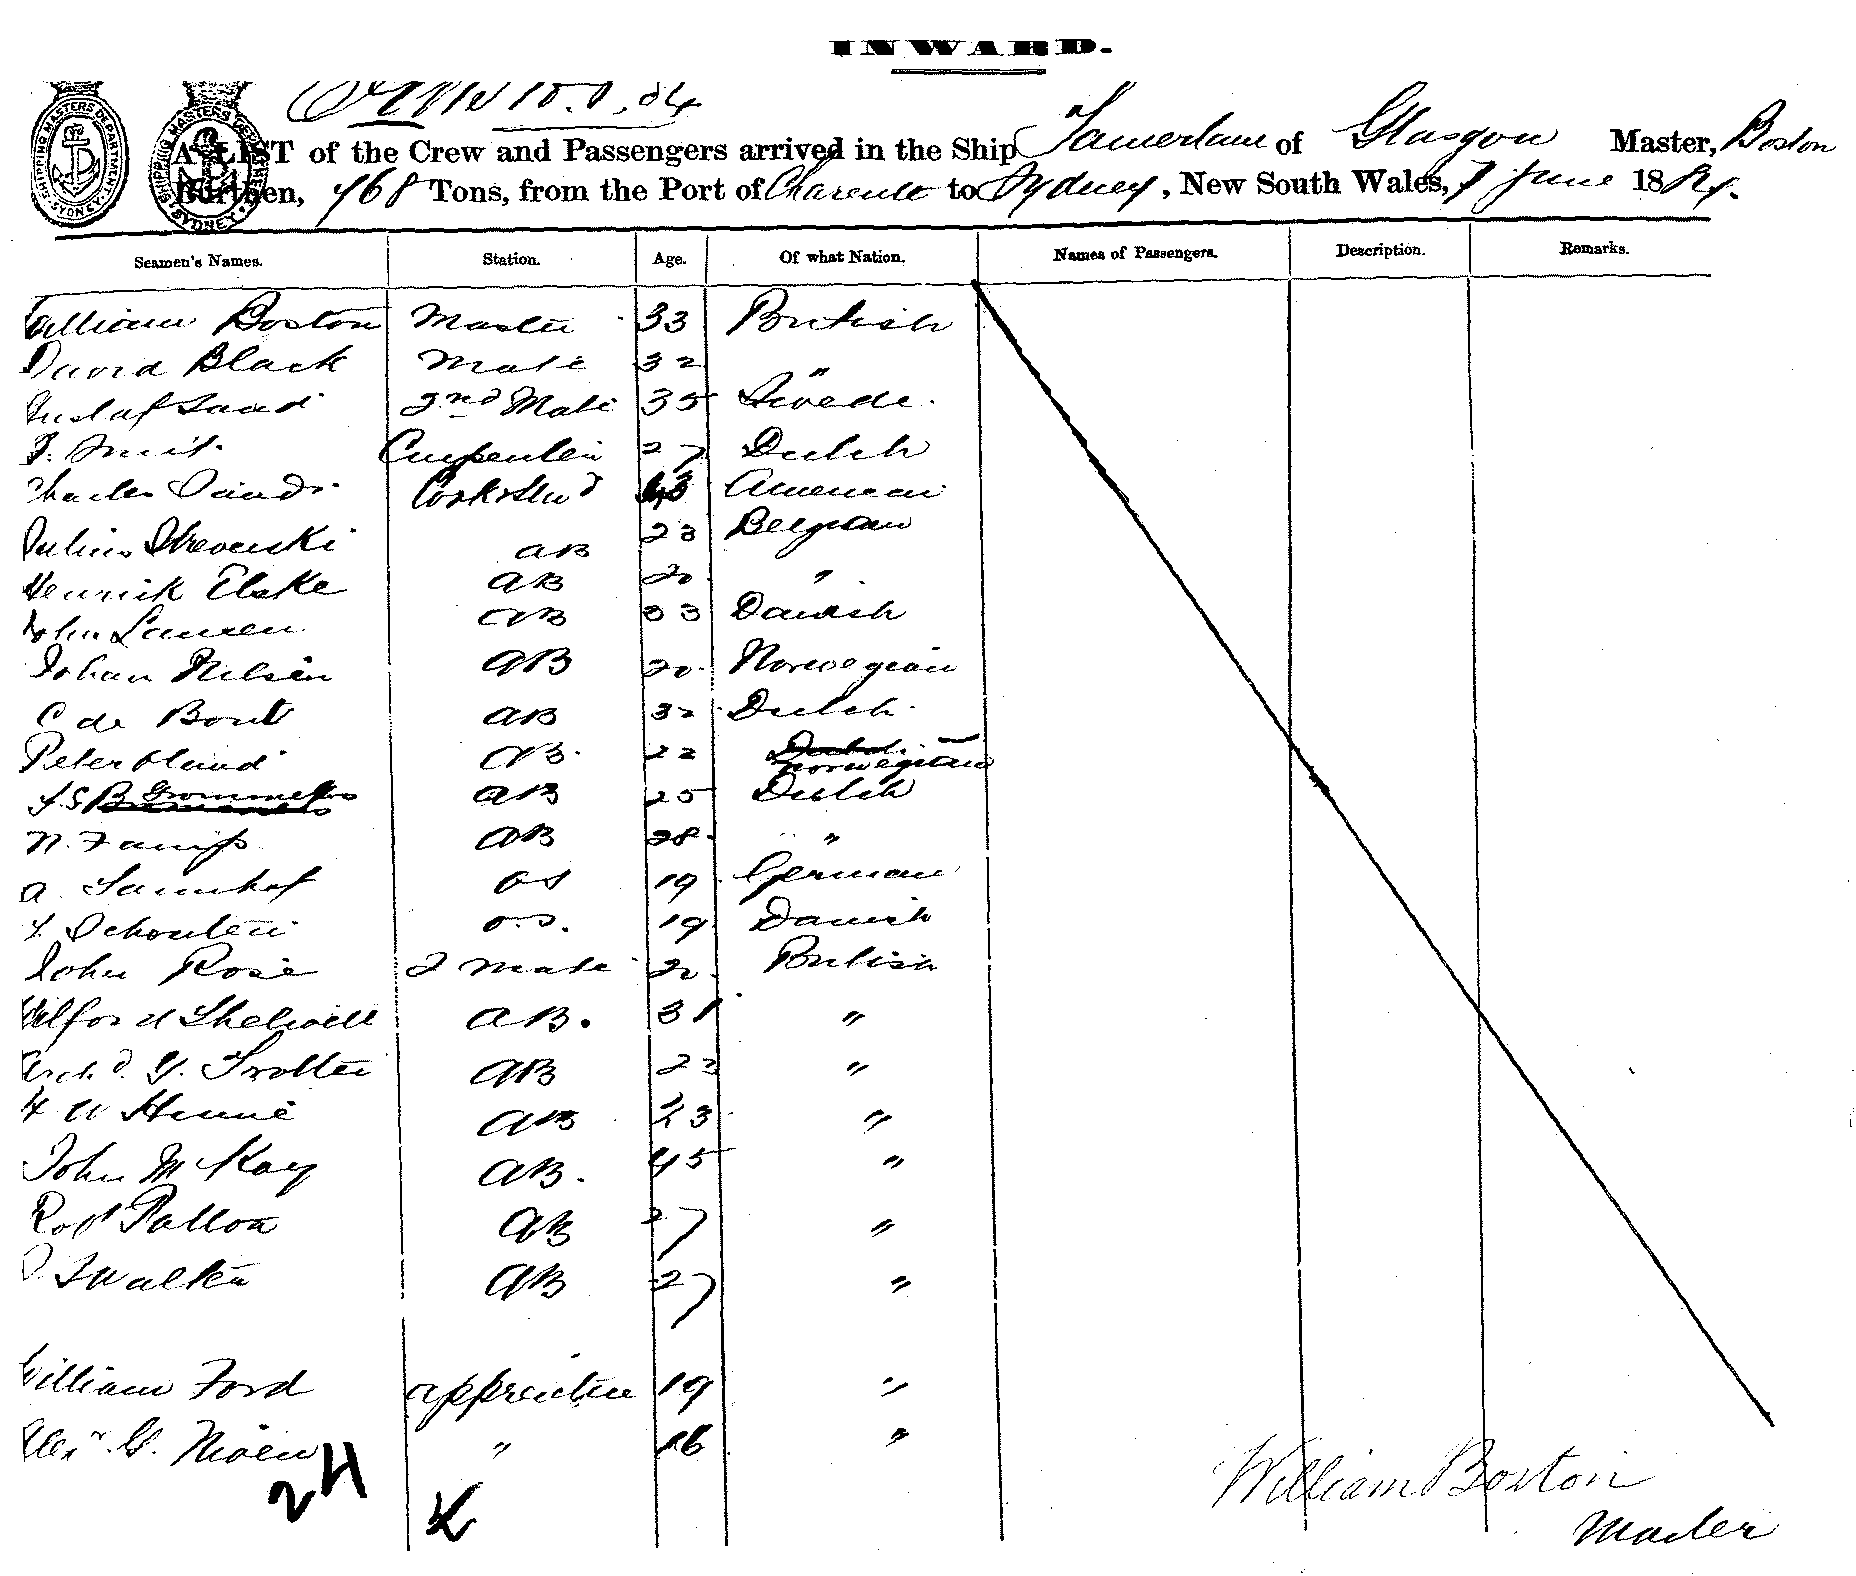 INWARD.
A LIST of the Crew and Passengers arrived in the Ship Tamerlane of Glasgow Master, Boston
Burthen, 768 Tons, from the Port of Charente to Sydney, New South Wales, 7 June 1884.
Seamen's Names. Station. Age. Of what Nation. Names of Passengers. Description. Remarks.
William Boston Master 33 British
David Black Mate 32 "
Gustaf 2nd Mate 35 Swede.
Smit. Carpenter 27 Dutch
Charles Cook & Stwd 43 American
Julius AB 23 Belgian
Henrick Elske AB 20 "
John Lansen AB 33 Danish
Johan Nilsen AB 20 Norwegian
C de Bont AB 32 Dutch
Peter AB. 22 Norwegian
AB 25 Dutch
N. AB 28 "
A. OS 19 German
Schouten O.S. 19 Danish
John Rose 2 Mate 20 British
AB. 31 "
Archd. G. Trotter AB 23 "
W AB 23 "
John McKay AB. 45 "
Robt Patton AB 27 "
Walker AB 27 "
William Ford apprentice 19 "
Alexr. G. " 16 "
24
William Boston
Master
SHIPPING MASTERS DEPARTMENT SYDNEY
SHIPPING MASTERS DEPARTMENT SYDNEY